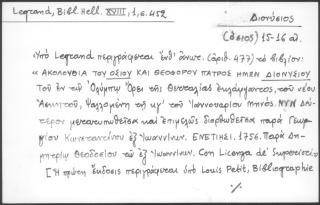 Legrand, Bibl. Hell. XVIII, 1, σ. 452
Διονύσιος
(ὅσιος) 15-16 αἰ.
Ὑπὸ Legrand περιγράφεται ἐνθ' ἀνωτ. (ἀριθ. 477) τὸ βιβλίον:
« ΑΚΟΛΟΥΘΙΑ ΤΟΥ ΟΣΙΟΥ ΚΑΙ ΘΕΟΦΟΡΟΥ ΠΑΤΡΟΣ ΗΜΩΝ ΔΙΟΝΥΣΙΟΥ
Τοῦ ἐν τῷ Ὀλύμπῳ Ὄρει τῆς Θετταλίας ἐκλάμψαντος, τοῦ νέου
Ἀσκητοῦ, Ψαλλομένη τῇ κγ' τοῦ Ἰαννουαρίου μηνός. ΝΥΝ Δεύ-
τερον μετατυπωθεῖσα καὶ ἐπιμελῶς διορθωθεῖσα παρὰ Γεωρ-
γίου Κωνσταντίνου ἐξ Ἰωαννίνων. ΕΝΕΤΙΗΣΙ. 1756. Παρὰ Δη-
μητρίῳ Θεοδοσίου τῷ ἐξ Ἰωαννίνων. Con Licenza de' Superiori
[Ἡ πρώτη ἔκδοσις περιγράφεται ὑπὸ Louis Petit, Bibliographie
·/.